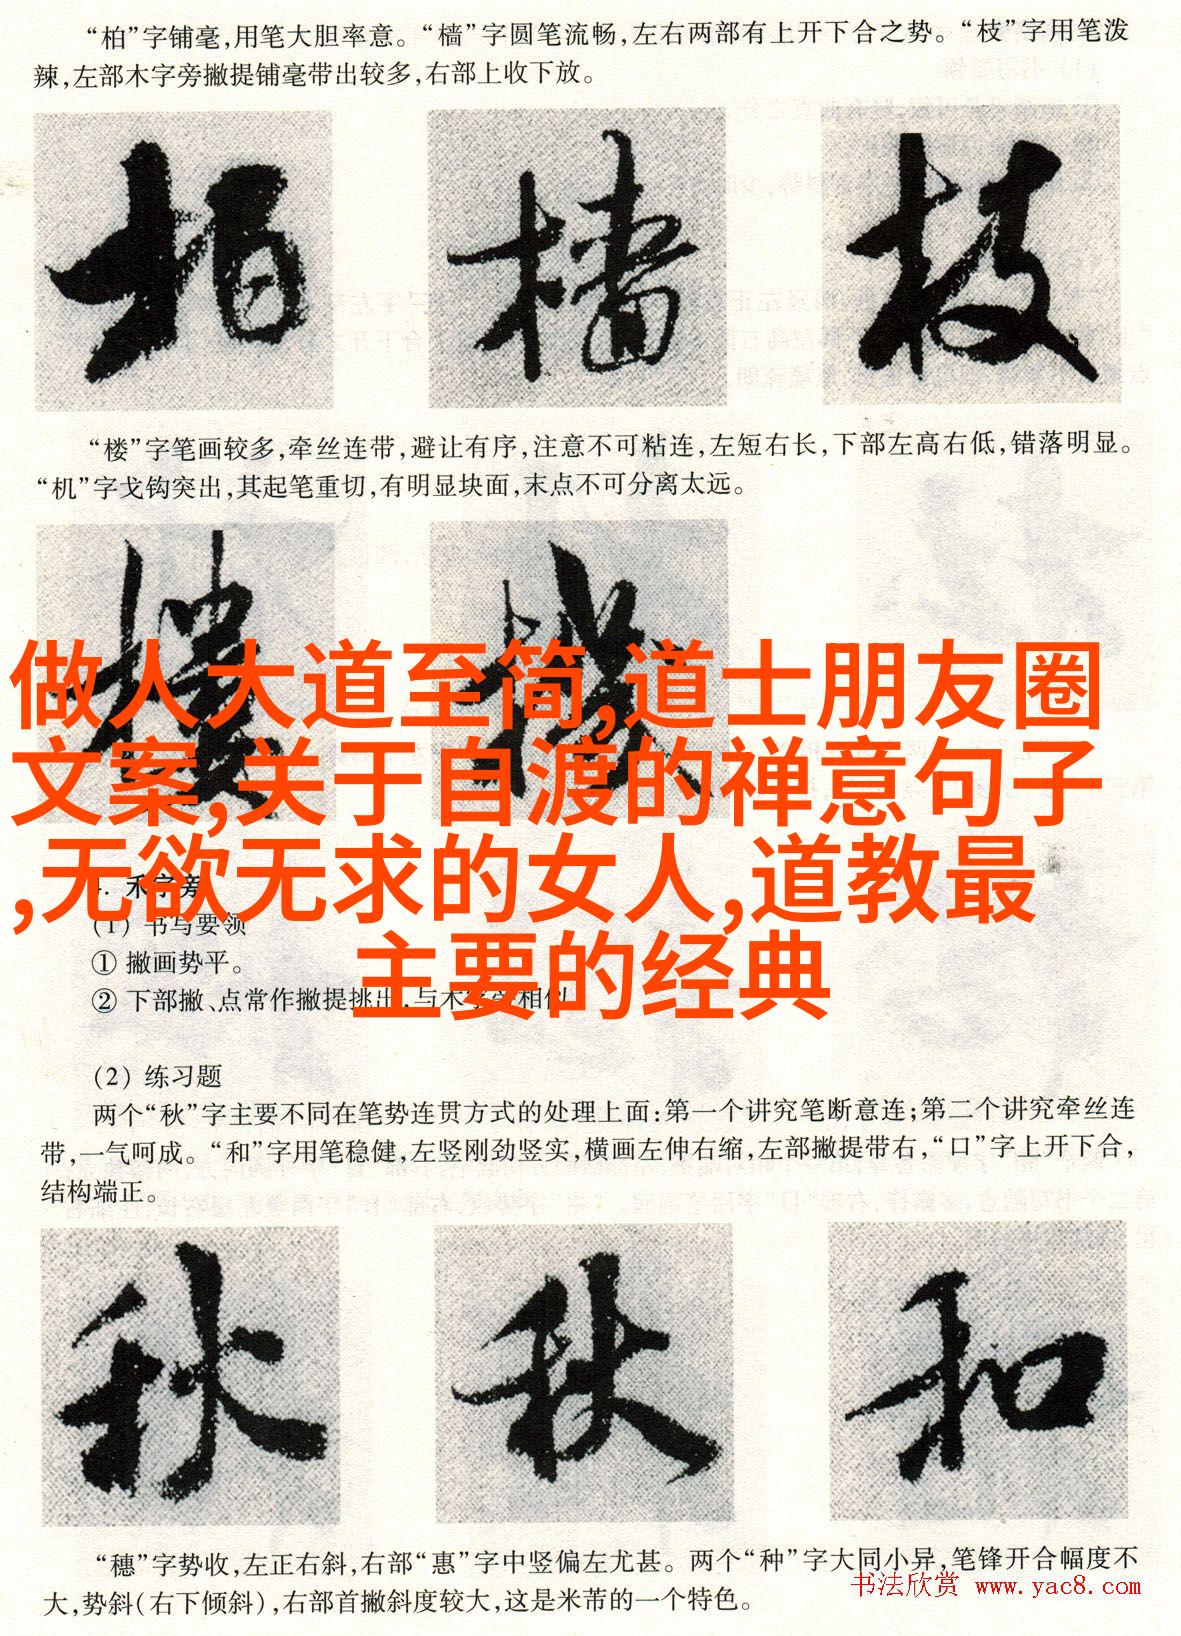 “柏”字铺毫,用笔大胆率意。“樯”字圆笔流畅,左右两部有上开下合之势。“枝”字用笔泼
辣,左部木字旁撇提铺毫带出较多,右部上收下放。
柏 樯 枝
“楼”字笔画较多,牵丝连带,避让有序,注意不可粘连,左短右长,下部左高右低,错落明显。
“机”字戈钩突出,其起笔重切,有明显块面,末点不可分离太远。
楼 機
做人大道至简,道士朋友圈
文案,关于自渡的禅意句子
,无欲无求的女人,道教最
主要的经典
禾字旁
(1) 书写要领
① 撇画势平。
② 下部撇、点常作撇提挑出,与木字旁相似
(2) 练习题
两个“秋”字主要不同在笔势连贯方式的处理上面:第一个讲究笔断意连;第二个讲究牵丝连
带,一气呵成。“和”字用笔稳健,左竖刚劲竖实,横画左伸右缩,左部撇提带右,“口”字上开下合,
结构端正。
秋 秋 和
“穗”字势收,左正右斜,右部“惠”字中竖偏左尤甚。两个“种”字大同小异,笔锋开合幅度不
大,势斜(右下倾斜),右部首撇斜度较大,这是米芾的一个特色。
书法欣赏 www.yac8.com